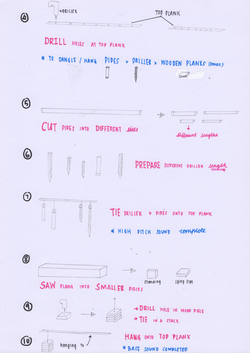 ④
DRILLER
TOP PLANK
DRILL HOLES AT TOP PLANK
* TO DANGLE / HANG PIPES + DRILLER + WOODEN PLANKS
⑤
CUT PIPES INTO DIFFERENT SIZES
different lengths
⑥
PREPARE DIFFERENT DRILLER LENGTH
⑦
TIE DRILLER & PIPES ONTO TOP PLANK
* HIGH PITCH SOUND COMPLETE
⑧
SAW PLANK INTO SMALLER PIECES
⑨
→ DRILL HOLE IN WOOD PIECE
→ TIE IN A STACK
⑩
hanging to
HANG ONTO TOP PLANK
* BASS SOUND COMPLETED